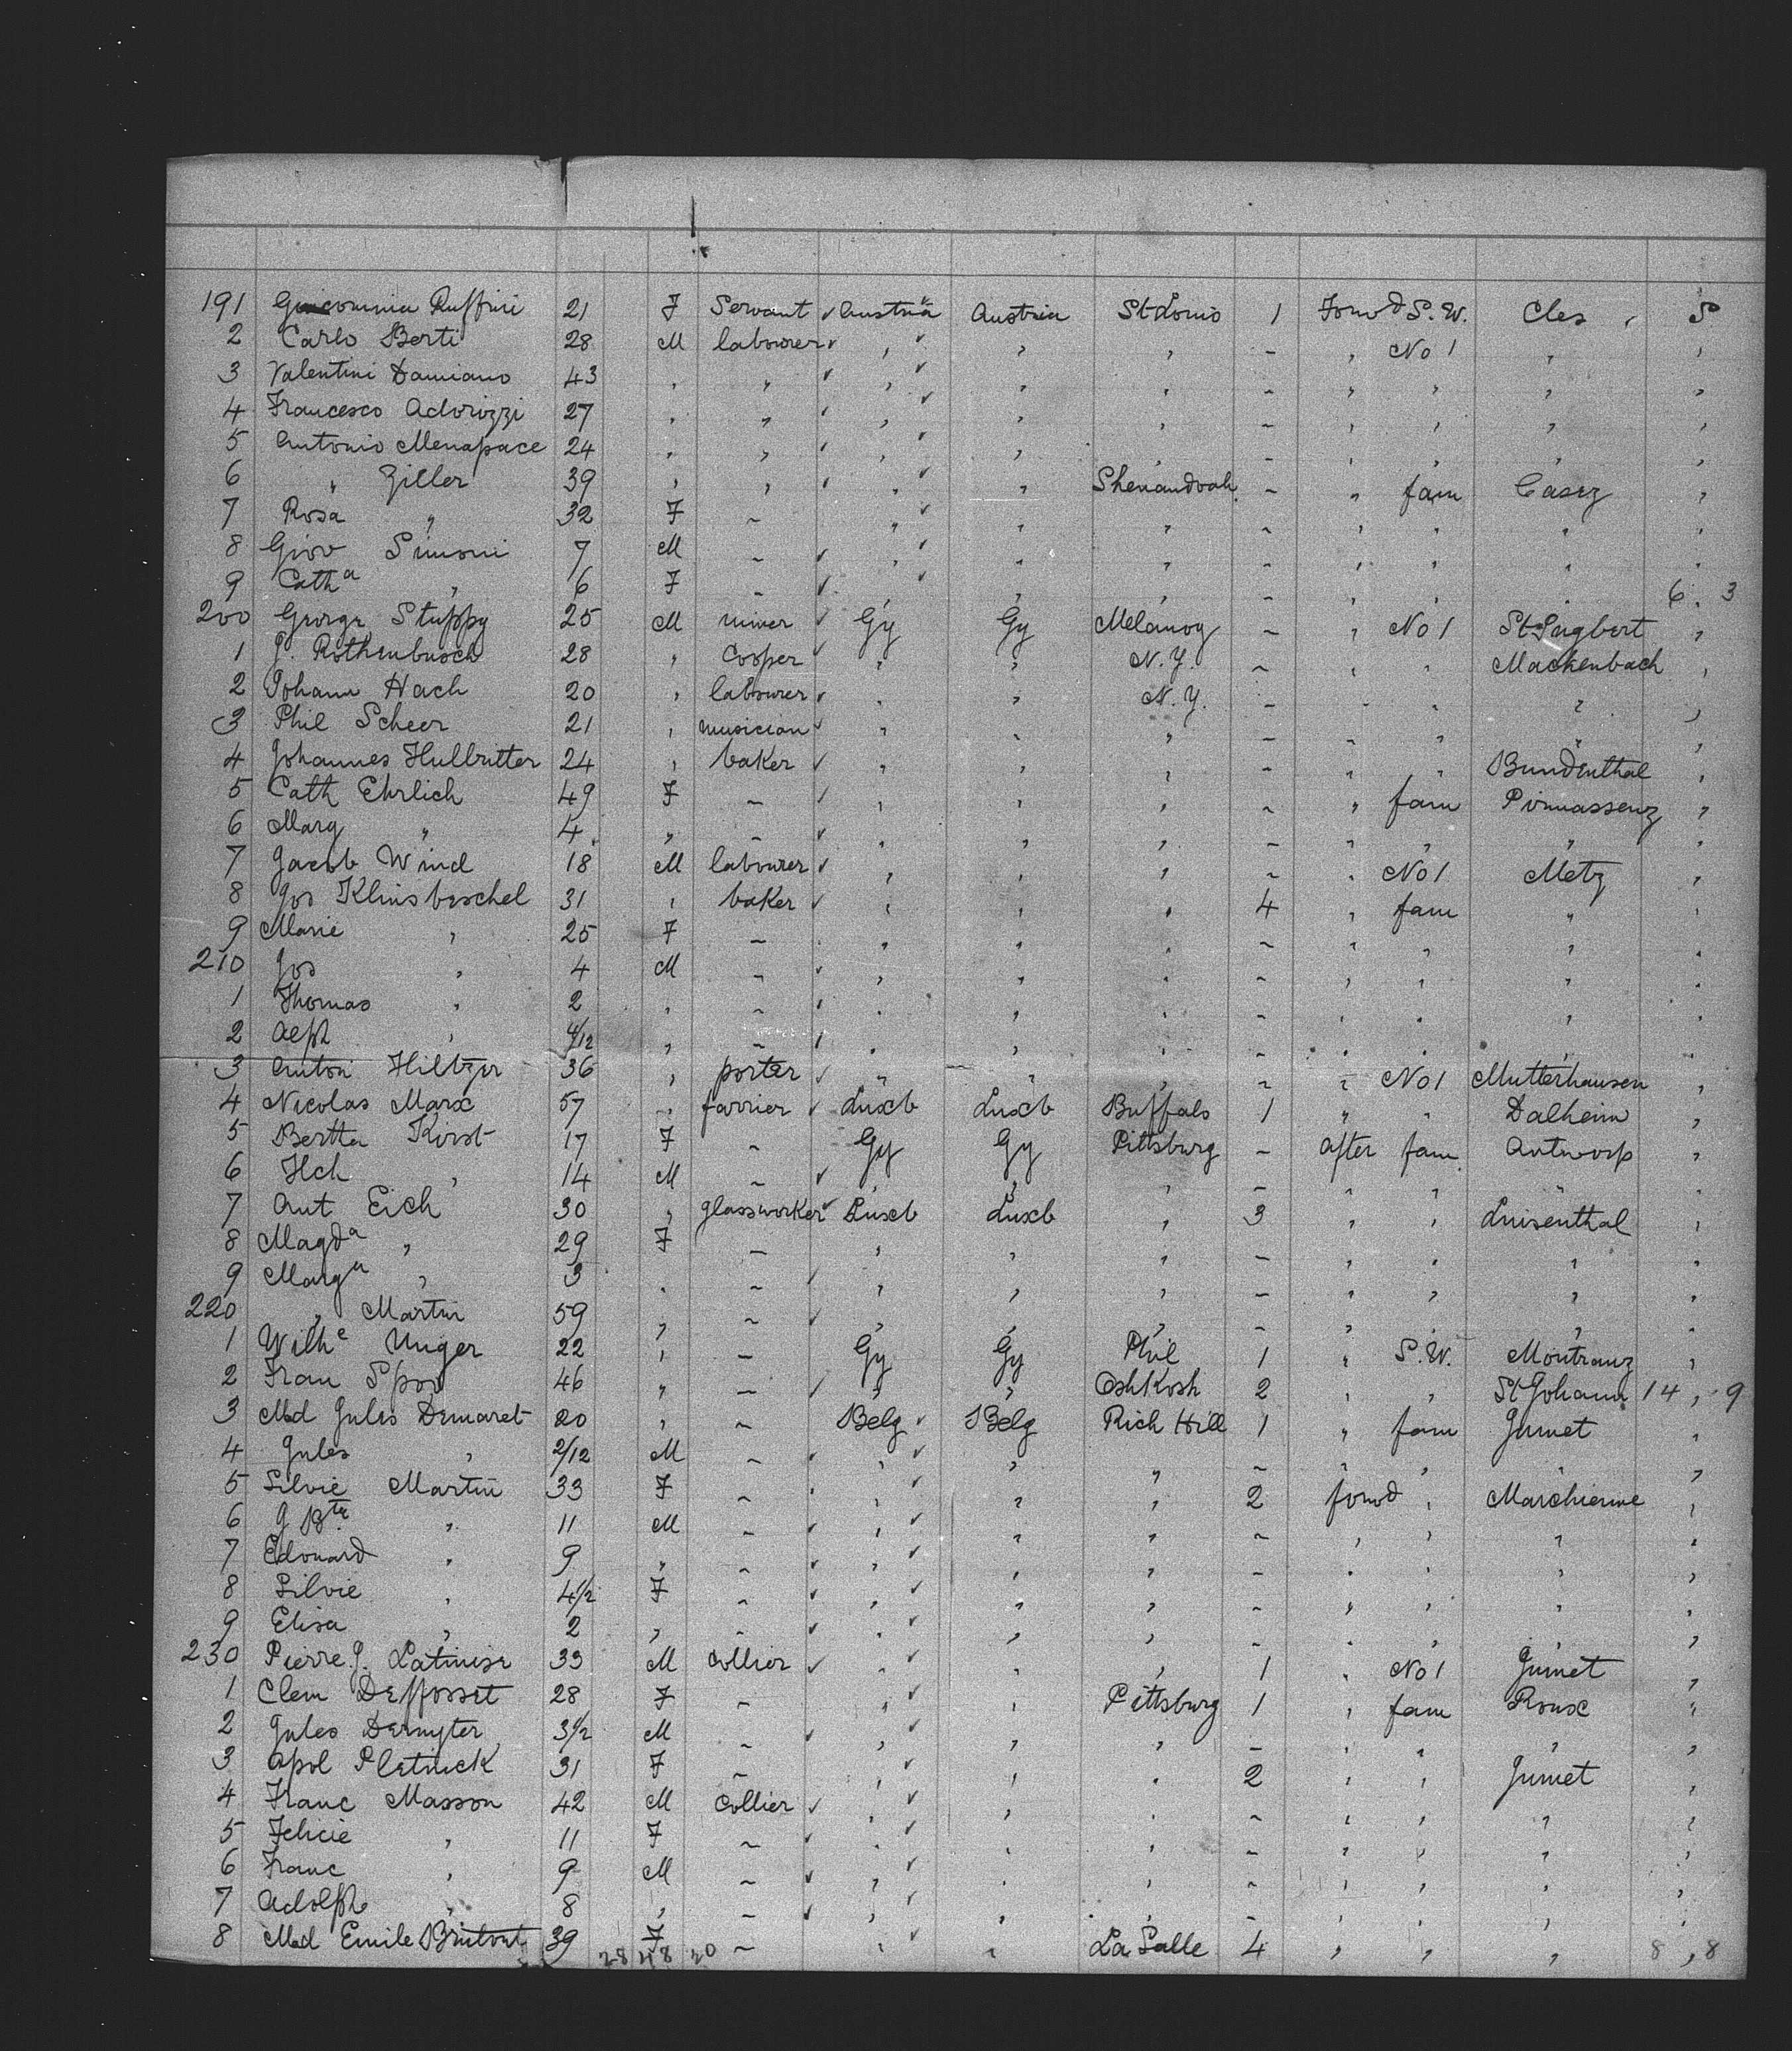 191 Giacomina Ruffini 21 F Servant Austria Austria St Louis 1 Forwd S.W. Cles , S
2 Carlo Berti 28 M labourer " " " - " No 1 " "
3 Valentini Damiano 43 " " " " " - " " " "
4 Francesco Adorizzi 27 " " " " " - " " " "
5 Antonio Menapace 24 " " " " " - " " " "
6 " Ziller 39 " " " " Shenandoah - " fam Casez "
7 Rosa " 32 F - " " " - " " " "
8 Giov Simoni 7 M - " " " - " " " "
9 Cath a " 6 F - " " " - " " " 6. 3
200 George Stuppy 25 M miner Gy Gy - " No 1 St Ingbert "
1 J. Rothenbusch 28 " Cooper " " N.Y. - " " Mackenbach "
2 Johann Hach 20 " labourer " " N.Y. - " " " "
3 Phil Scheer 21 " musician " " " - " " " "
4 Johannes Hullbutter 24 " baker " " " - " " Bundenthal "
5 Cath Ehrlich 49 F - " " " - " fam Pirmassenz "
6 Marg " 4 " - " " " - " " " "
7 Jacob Wind 18 M labourer " " " - " No 1 Metz "
8 Jos 31 " baker " " " 4 " fam " "
9 Marie " 25 F - " " " - " " " "
210 Jos " 4 M - " " " - " " " "
1 Thomas " 2 " - " " " - " " " "
2 Alph " 4/12 " - " " " - " " " "
3 Anton Hiltzer 36 " porter " " " - " No 1 Mutterhausen "
4 Nicolas Marx 57 " farrier Luxb Luxb Buffalo 1 " " Dalheim "
5 Bertha Kirst 17 F - Gy Gy Pittsburg - after fam Antwerp "
6 Hch " 14 M - " " " - " " " "
7 Ant Eich 30 " glassworker Luxb Luxb " 3 " " Luisenthal "
8 Magd a " 29 F - " " " - " " " "
9 Marg a " 3 " - " " " - " " " "
220 " Martin 59 " - " " " - " " " "
1 Wilh e Unger 22 " - Gy Gy Phil 1 " S.W. "
2 Frau 46 " - " " Oshkosh 2 " " St Johann 14, 9
3 Md Jules Demaret 20 " - Belg Belg Rich Hill 1 " fam Jumet "
4 Jules " 2/12 M - " " " - " " " "
5 Silvie Martin 33 F - " " " 2 forwd " Marchienne "
6 J Bte " 11 M - " " " - " " " "
7 Edouard " 9 " - " " " - " " " "
8 Silvie " 4 1/2 F - " " " - " " " "
9 Elisa " 2 " - " " " - " " " "
230 Pierre J. 33 M Collier " " " 1 " No 1 Jumet "
1 Clem Deffosset 28 F - " " Pittsburg 1 " fam Roux "
2 Jules Dernyter 3 1/2 M - " " " - " " " "
3 Apol Pletinck 31 F - " " " 2 " " Jumet "
4 Franc Masson 42 M Collier " " " - " " " "
5 Felicie " 11 F - " " " - " " " "
6 Franc " 9 M - " " " - " " " "
7 Adolph " 8 " - " " " - " " " "
8 Md Emile 39 F - " " La Salle 4 " " " 8, 8